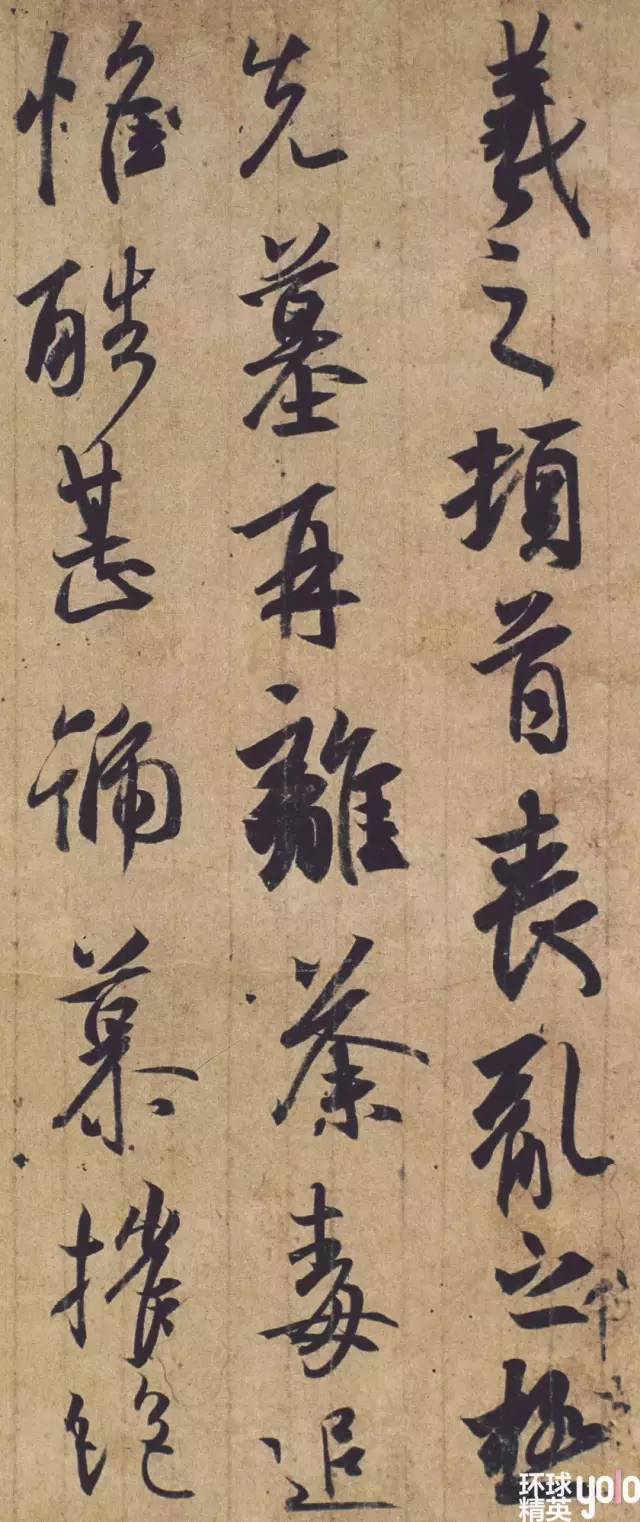 羲之頓首喪亂之極
先墓再離荼毒追
惟酷甚號慕摧絕
环球精英 yolo